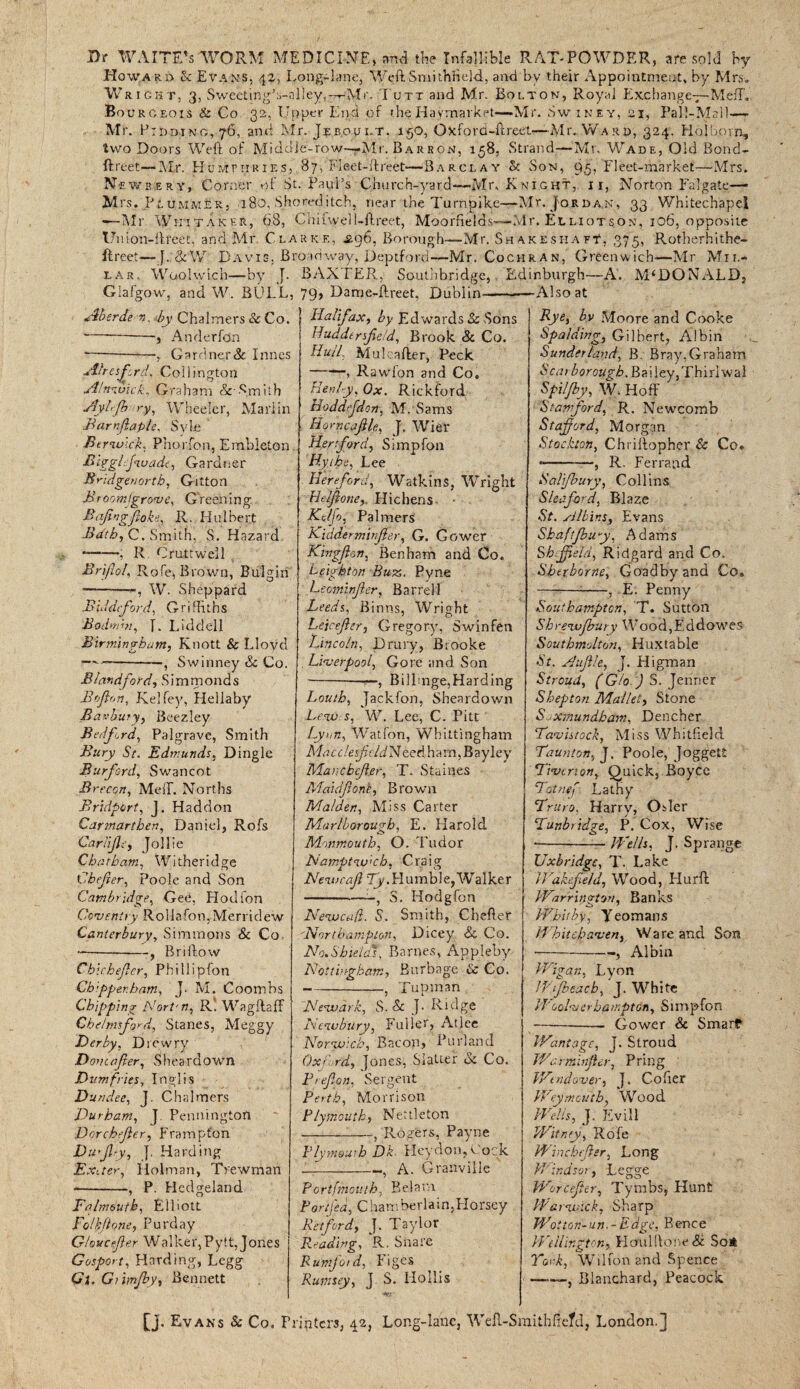 Dr WAITE's WORM MEDICINE, and the Infallible RAT-POWDER, are sold by
Howard & Evans, 42, Long-lane, Weſt Smithfield, and by their Appointment, by Mrs.
Wright, 3, Sweeting's-alley,—Mr. Tutt and Mr. Bolton, Royal Exchange—Meſſ.
Bourgeois & Co 32, Upper End of the Haymarket—Mr. Swiney, 21, Pall-Mall—
Mr. Pidding, 76, and Mr. Jeroult, 150, Oxford-ſtreet—Mr. Ward, 324, Holborn,
two Doors Weſt of Middle-row—Mr. Barron, 158, Strand—Mr. Wade, Old Bond-
ſtreet—Mr. Humphries, 87, Fleet-ſtreet—Barclay & Son, 95, Fleet-market—Mrs.
Newbery, Corner of St. Paul's Church-yard—Mr. Knight, 11, Norton Falgate—
Mrs. Plummer, 180, Shoreditch, near the Turnpike—Mr. Jordan, 33 Whitechapel
—Mr Whitaker, 68, Chiſwell-ſtreet, Moorfields—Mr. Elliotson, 106, oppoſite
Union-ſtreet, and Mr Clarke, 296, Borough—Mr. Shakeshaft, 375, Rotherhithe-
ſtreet—J. & W Davis, Broadway, Deptford—Mr. Cochran, Greenwich—Mr Mil-
lar, Woolwich—by J. BAXTER, Southbridge, Edinburgh—A. M'DONALD,
Glaſgow, and W. BULL, 79, Dame-ſtreet, Dublin——Also at
Aberdeen, by Chalmers & Co.
———, Anderſon
———, Gardner & Innes
Alresford, Collington
Alnwick, Graham & Smith
Aylſbury, Wheeler, Marlin
Barnſtaple, Syle
Berwick, Phorſon, Embleton
Biggleſwade, Gardner
Bridgenorth, Gitton
Bromſgrove, Greening
Baſingſtoke, R. Hulbert
Bath, C. Smith, S. Hazard
———, R Cruttwell
Briſtol, Roſe, Brown, Bulgin
———, W. Sheppard
Biddeford, Griffiths
Bodmin, I. Liddell
Birmingham, Knott & Lloyd
———, Swinney & Co.
Blandford, Simmonds
Boſton, Kelſey, Hellaby
Banbury, Beezley
Bedford, Palgrave, Smith
Bury St. Edmunds, Dingle
Burford, Swancot
Brecon, Meſſ. Norths
Bridport, J. Haddon
Carmarthen, Daniel, Roſs
Carliſle, Jollie
Chatham, Witheridge
Cheſter, Poole and Son
Cambridge, Gee, Hodſon
Coventry Rollaſon, Merridew
Canterbury, Simmons & Co
———, Briſtow
Chicheſter, Phillipſon
Chippenham, J. M. Coombs
Chipping Norton, R. Wagſtaff
Chelmsford, Stanes, Meggy
Derby, Drewry
Doncaſter, Sheardown
Dumfries, Inglis
Dundee, J. Chalmers
Durham, J Pennington
Dorcheſter, Frampton
Durſley, J. Harding
Exeter, Holman, Trewman
———, P. Hedgeland
Falmouth, Elliott
Folkſtone, Purday
Glouceſter Walker, Pytt, Jones
Gosport, Harding, Legg
Gt. Grimſby, Bennett
Halifax, by Edwards & Sons
Huddersfield, Brook & Co.
Hull, Mulcaſter, Peck
———, Rawſon and Co.
Henley, Ox. Rickford
Hoddeſdon, M. Sams
Horncaſtle, J. Wier
Hertford, Simpſon
Hythe, Lee
Hereford, Watkins, Wright
Helſtone, Hichens
Kelſo, Palmers
Kidderminſter, G. Gower
Kingſton, Benham and Co.
Leighton Buz. Pyne
Leominſter, Barrell
Leeds, Binns, Wright
Leiceſter, Gregory, Swinfen
Lincoln, Drury, Brooke
Liverpool, Gore and Son
———, Billinge, Harding
Louth, Jackſon, Sheardown
Lewes, W. Lee, C. Pitt
Lynn, Watſon, Whittingham
Macclesfield Needham, Bayley
Mancheſter, T. Staines
Maidſtone, Brown
Malden, Miss Carter
Marlborough, E. Harold
Monmouth, O. Tudor
Namptwich, Craig
Newcaſt Ty. Humble, Walker
———, S. Hodgſon
Newcaſt. S. Smith, Cheſter
Northampton, Dicey & Co.
No. Shields, Barnes, Appleby
Nottingham, Burbage & Co.
———, Tupman
Newark, S. & J. Ridge
Newbury, Fuller, Atlee
Norwich, Bacon, Purland
Oxford, Jones, Slatter & Co.
Preſton, Sergent
Perth, Morrison
Plymouth, Nettleton
———, Rogers, Payne
Plymouth Dk. Heydon, Cock
———, A. Granville
Portſmouth, Belam
Portſea, Chamberlain, Horsey
Retford, J. Taylor
Reading, R. Snare
Rumford, Figes
Rumsey, J S. Hollis
Rye, by Moore and Cooke
Spalding, Gilbert, Albin
Sunderland, B. Bray, Graham
Scarborough, Bailey, Thirlwal
Spilſby, W. Hoff
Stamford, R. Newcomb
Stafford, Morgan
Stockton, Chriſtopher & Co.
———, R. Ferrand
Saliſbury, Collins
Sleaford, Blaze
St. Albins, Evans
Shaftſbury, Adams
Sheffield, Ridgard and Co.
Sherborne, Goadby and Co.
———, E. Penny
Southampton, T. Sutton
Shrewſbury Wood, Eddowes
Southmolton, Huxtable
St. Auſtle, J. Higman
Stroud, (Glo.) S. Jenner
Shepton Mallet, Stone
Saxmundham, Dencher
Tavistock, Miss Whitfield
Taunton, J. Poole, Joggett
Tiverton, Quick, Boyce
Totneſ Lathy
Truro, Harry, Osler
Tunbridge, P. Cox, Wise
——— Wells, J. Sprange
Uxbridge, T. Lake
Wakefield, Wood, Hurſt
Warrington, Banks
Whitby, Yeomans
Whitehaven, Ware and Son
———, Albin
Wigan, Lyon
Wiſbeach, J. White
Wolverhampton, Simpſon
——— Gower & Smart
Wantage, J. Stroud
Warminſter, Pring
Wendover, J. Coſier
Weymouth, Wood
Wells, J. Evill
Witney, Roſe
Wincheſter, Long
Windsor, Legge
Worceſter, Tymbs, Hunt
Warwick, Sharp
Wotton-un.-Edge, Bence
Wellington, Houlſtone & Son
York, Wilſon and Spence
———, Blanchard, Peacock
[J. Evans & Co. Printers, 42, Long-lane, Weſt-Smithfield, London.]